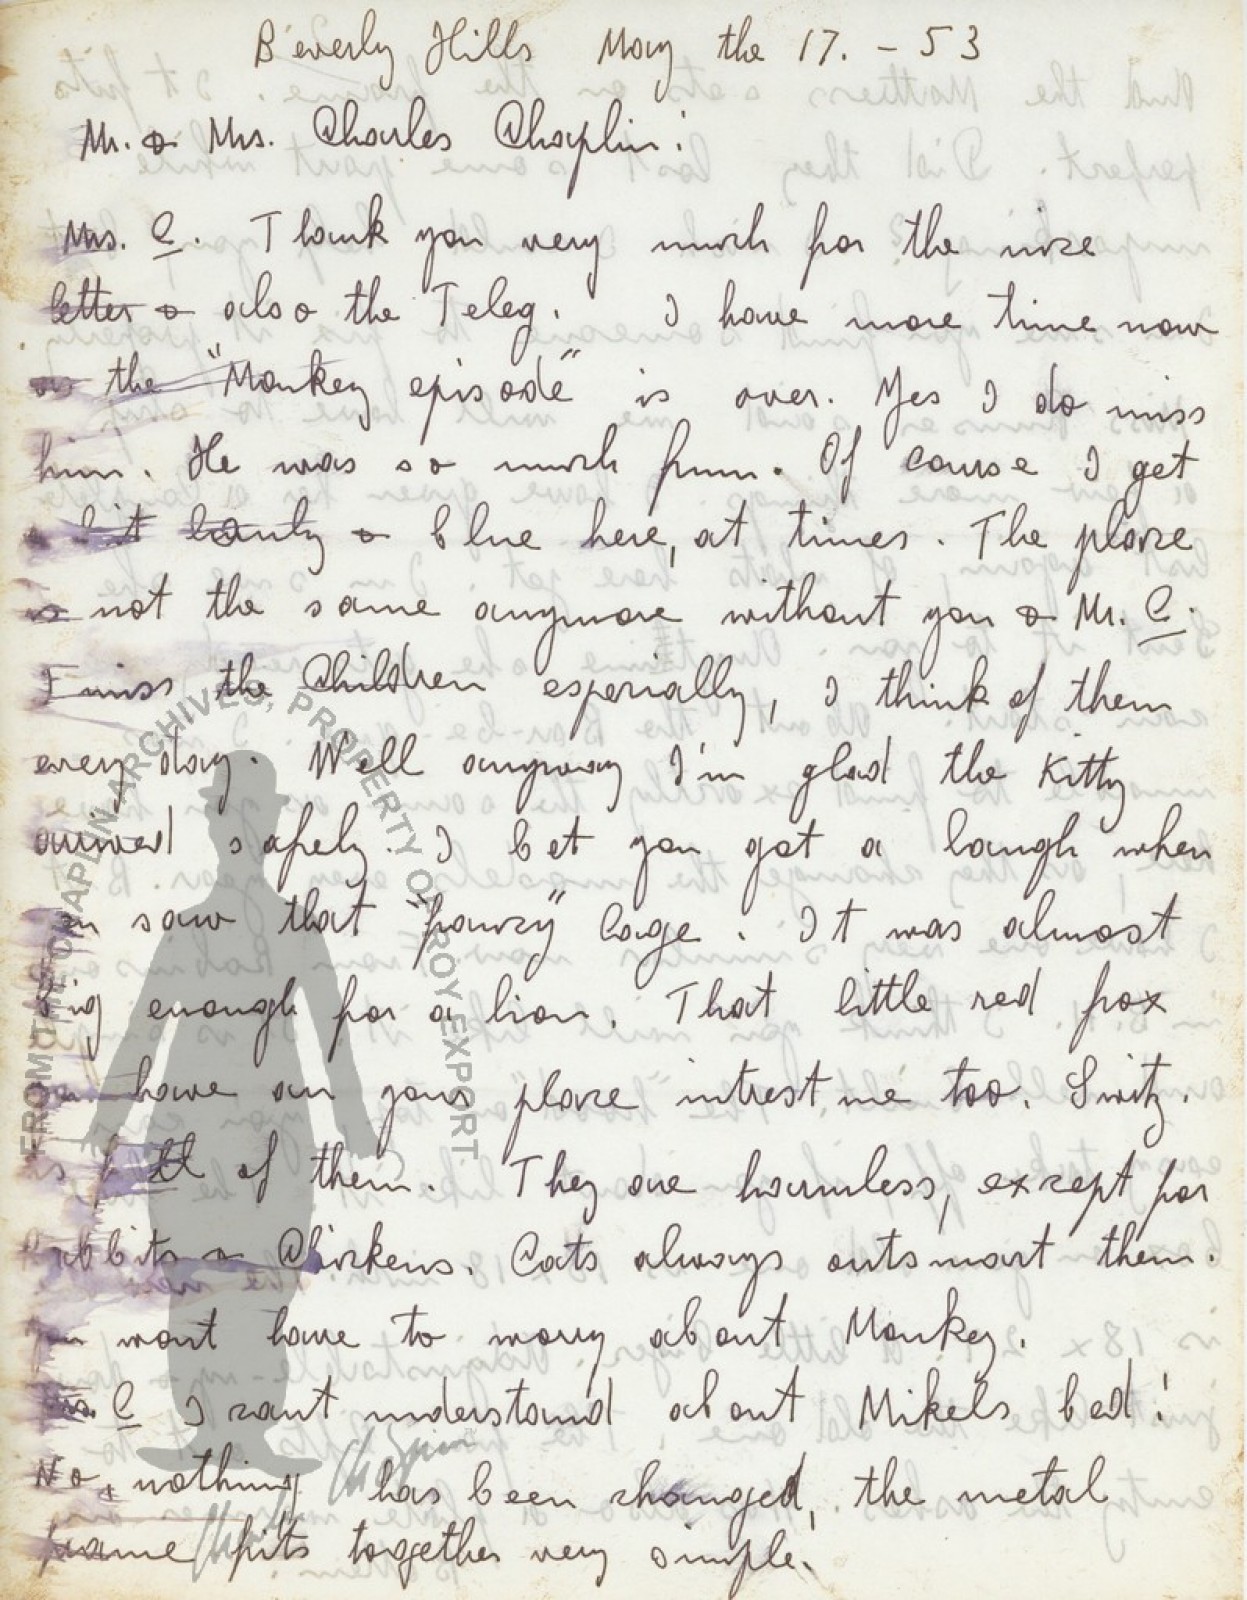 Beverly Hills May the 17. - 53
Mr. & Mrs. Charles Chaplin:
Mrs. C. Thank you very much for the nice
letter & also the Teleg. I have more time now
as the "Monkey episode" is over. Yes I do miss
him. He was so much funn. Of course I get
a bit lonly & blue here, at times. The place
is not the same anymore without you & Mr. C.
I miss the Children especially, I think of them
every day. Well anyway I'm glad the Kitty
arrived safely. I bet you got a laugh when
you saw that "fancy" Cage. It was almost
big enough for a lion. That little red fox
you have on your place intrest me too. Switz.
is full of them. They are harmless, except for
Rabbits & Chickens. Cats always outsmart them.
you wont have to worry about Monkey.
Mrs. C I cant understand about Mikels bed!
No, nothing has been changed, the metal
frame fits together very simple.
FROM THE CHAPLIN ARCHIVES, PROPERTY OF ROY EXPORT